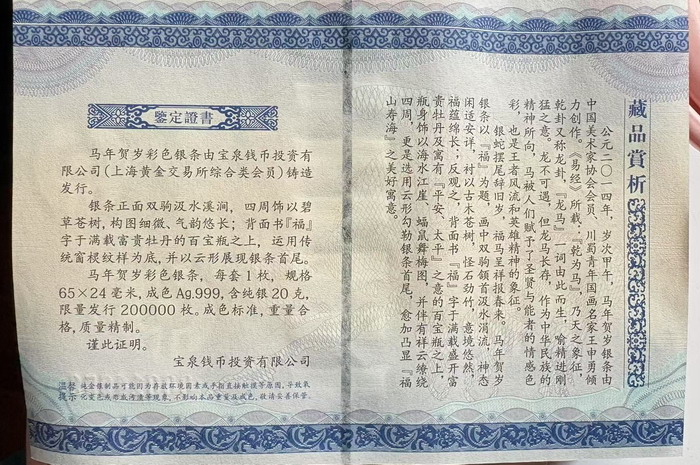 鉴定證書
马年贺岁彩色银条由宝泉钱币投资有
限公司(上海黄金交易所综合类会员)铸造
发行。
银条正面双驹汲水溪涧，四周饰以碧
草苍树，构图细微、气韵悠长；背面书『福』
字于满载富贵牡丹的百宝瓶之上，运用传
统窗棂纹样为底，并以云形展现银条首尾。
马年贺岁彩色银条，每套1枚，规格
65×24毫米，成色Ag.999，含纯银20克，
限量发行200000枚。成色标准，重量合
格，质量精制。
谨此证明。
宝泉钱币投资有限公司
温馨提示
纯金银制品可能因为存放环境因素或手指直接触摸等原因，导致氧
化变色或形成污渍等现象，不影响本品重量及成色，敬请妥善保管。
藏品赏析
公元二〇一四年，岁次甲午，马年贺岁银条由
中国美术家协会会员、川蜀青年国画名家王申勇倾
力创作。《易经》所载，『乾为马』，乃天之象征，
乾卦又称龙卦，『龙马』一词由此而生，喻精进刚
猛之意。龙不可遇，但龙马长存，作为中华民族的
精神所向，马被人们赋予了圣贤与能者的情感色
彩，也是王者风流和英雄精神的象征。
银蛇摆尾辞旧岁，福马呈祥报春来。马年贺岁
银条以『福』为题，画中双驹领首汲水涓流，神态
闲适安详，村以古木苍树，怪石劲竹，意境悠然，
福蕴绵长；反观之，背面书『福』字于满载盛开富
贵牡丹及寓有『平安、太平』之意的百宝瓶之上，
瓶身饰以海水江崖、蝠鼠舞梅图，并伴有祥云缭绕
四周，更是选用云形勾勒银条首尾，愈加凸显『福
山寿海』之美好寓意。